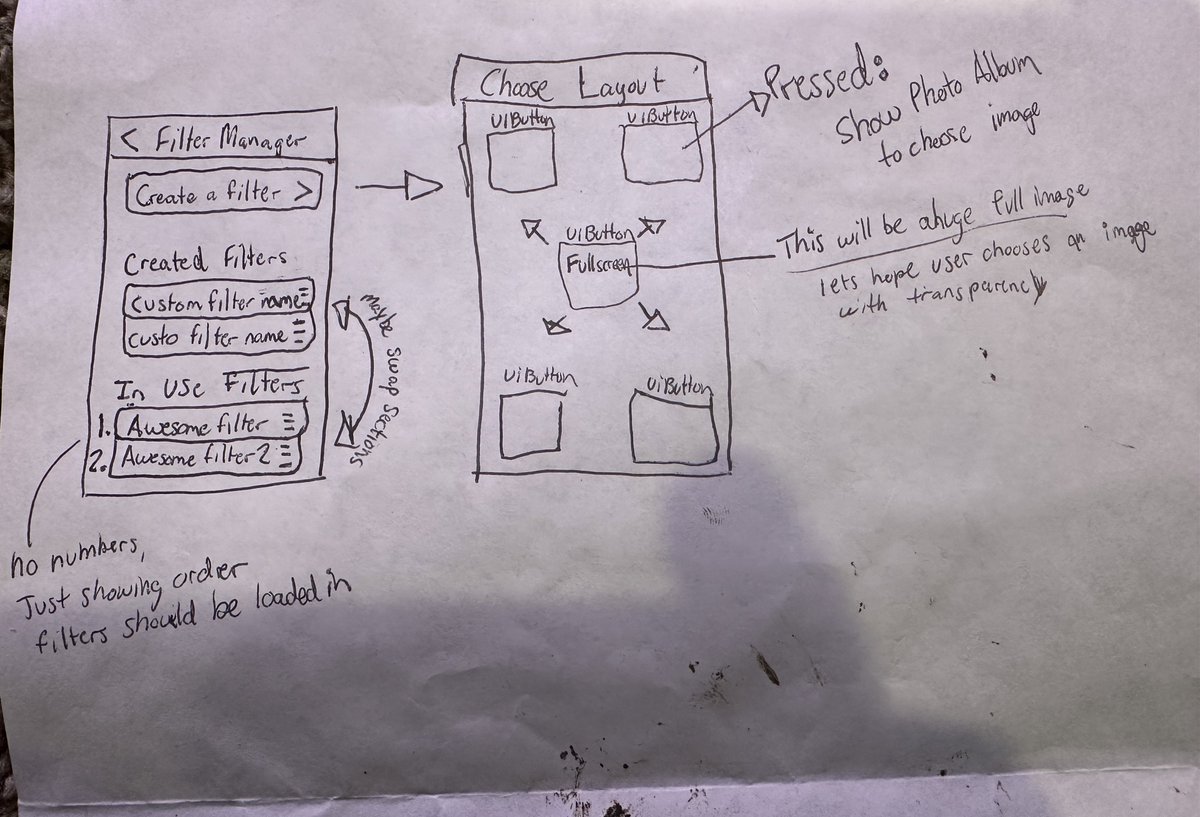 < Filter Manager
Create a filter >
Created Filters
custom filter name
custo filter name
In Use Filters
1. Awesome filter
2. Awesome filter 2
maybe swap sections
no numbers,
Just showing order
filters should be loaded in
Choose Layout
UiButton
UiButton
UiButton
Fullscreen
UiButton
UiButton
Pressed:
Show Photo Album
to choose image
This will be a huge full image
lets hope user chooses an image
with transparency